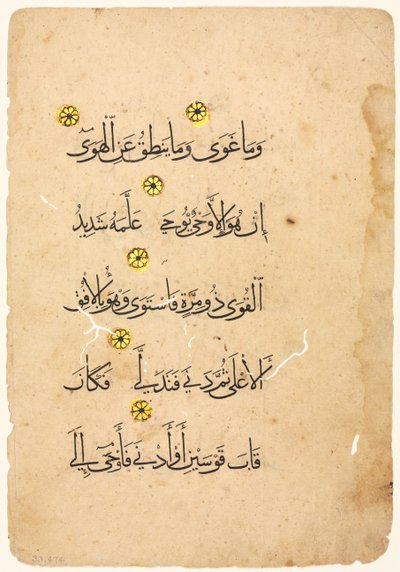 وَمَا غَوَى وَمَا يَنطِقُ عَنِ الْهَوَى
إِنْ هُوَ إِلَّا وَحْيٌ يُوحَى عَلَّمَهُ شَدِيدُ
الْقُوَى ذُو مِرَّةٍ فَاسْتَوَى وَهُوَ بِالْأُفُقِ
الْأَعْلَى ثُمَّ دَنَى فَتَدَلَّى فَكَانَ
قَابَ قَوْسَيْنِ أَوْ أَدْنَى فَأَوْحَى إِلَى
33.474